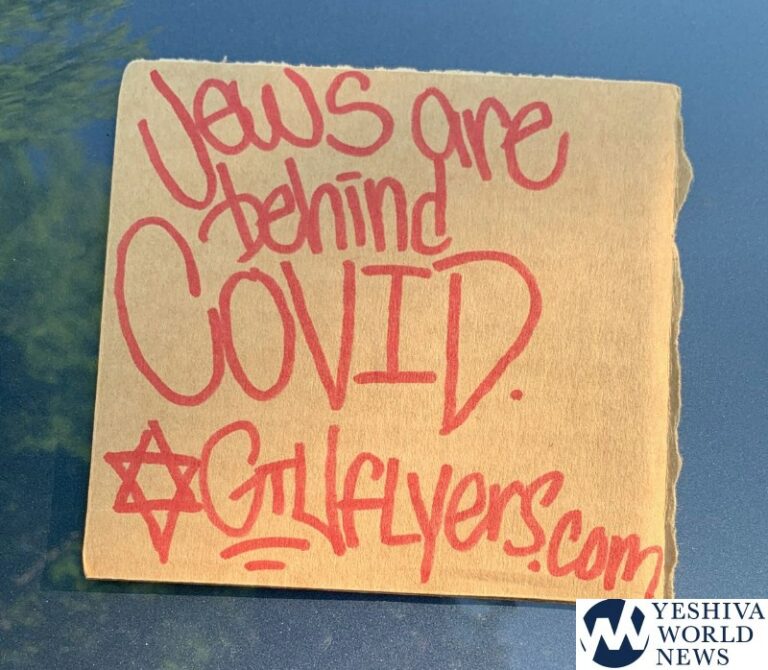 Jews are
behind
COVID.
✡GTVflyers.com
YESHIVA
WORLD
NEWS